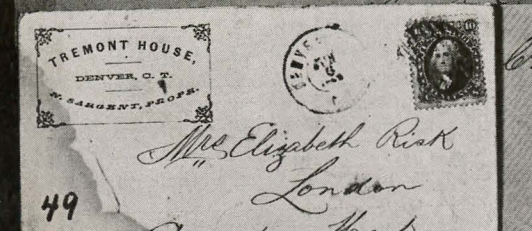 TREMONT HOUSE,
DENVER, C. T.
N. SARGENT, PROPR.
DENVER
10
Mrs Elizabeth Risk
London
49